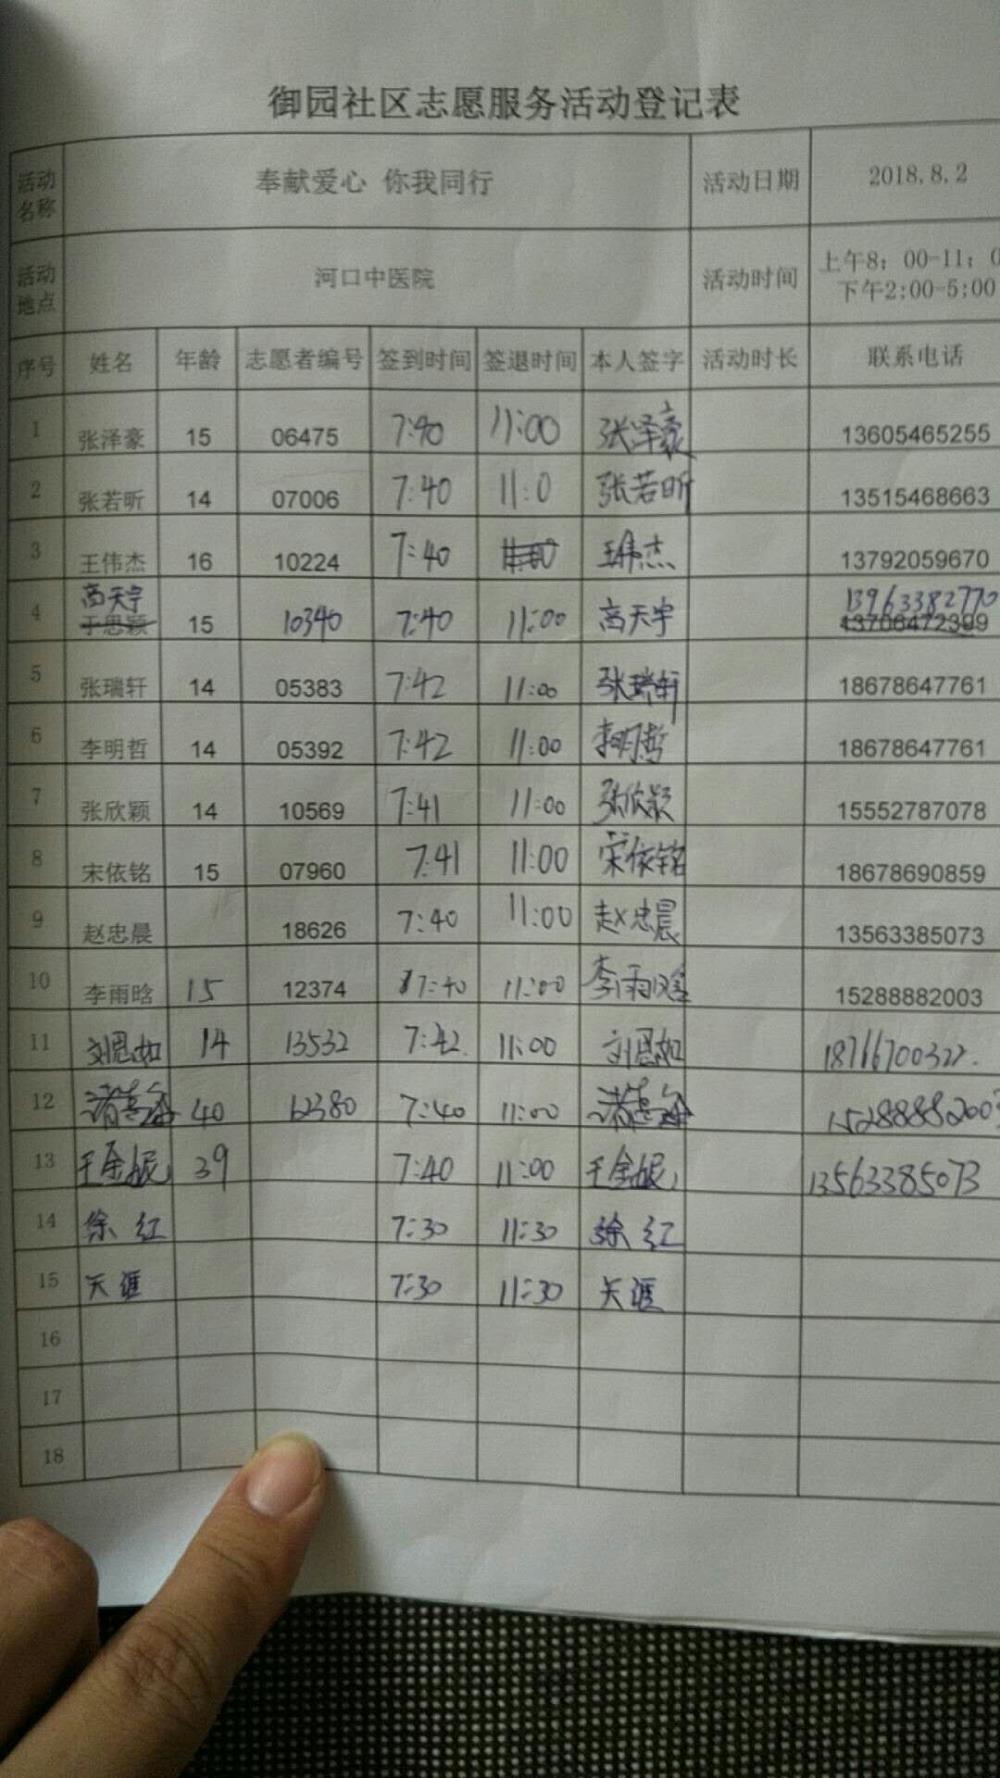 御园社区志愿服务活动登记表
活动名称 奉献爱心 你我同行 活动日期 2018.8.2
活动地点 河口中医院 活动时间 上午8：00-11：0 下午2:00-5:00
序号 姓名 年龄 志愿者编号 签到时间 签退时间 本人签字 活动时长 联系电话
1 张泽豪 15 06475 7:40 11:00 张泽豪 13605465255
2 张若昕 14 07006 7:40 11:0 张若昕 13515468663
3 王伟杰 16 10224 7:40 王伟杰 13792059670
高天宇 13963382770
4 于思颖 15 10340 7:40 11:00 高天宇 13706472399
5 张瑞轩 14 05383 7:42 11:00 张瑞轩 18678647761
6 李明哲 14 05392 7:42 11:00 李明哲 18678647761
7 张欣颖 14 10569 7:41 11:00 张欣颖 15552787078
8 宋依铭 15 07960 7:41 11:00 宋依铭 18678690859
9 赵忠晨 18626 7:40 11:00 赵忠晨 13563385073
10 李雨晗 15 12374 7:40 11:00 李雨晗 15288882003
11 刘恩如 14 13532 7:42 11:00 刘恩如 18766700322.
12 40 12380 7:40 11:00 1528888200
13 王金妮 39 7:40 11:00 王金妮 13563385073
14 徐红 7:30 11:30 徐红
15 天涯 7:30 11:30 天涯
16
17
18